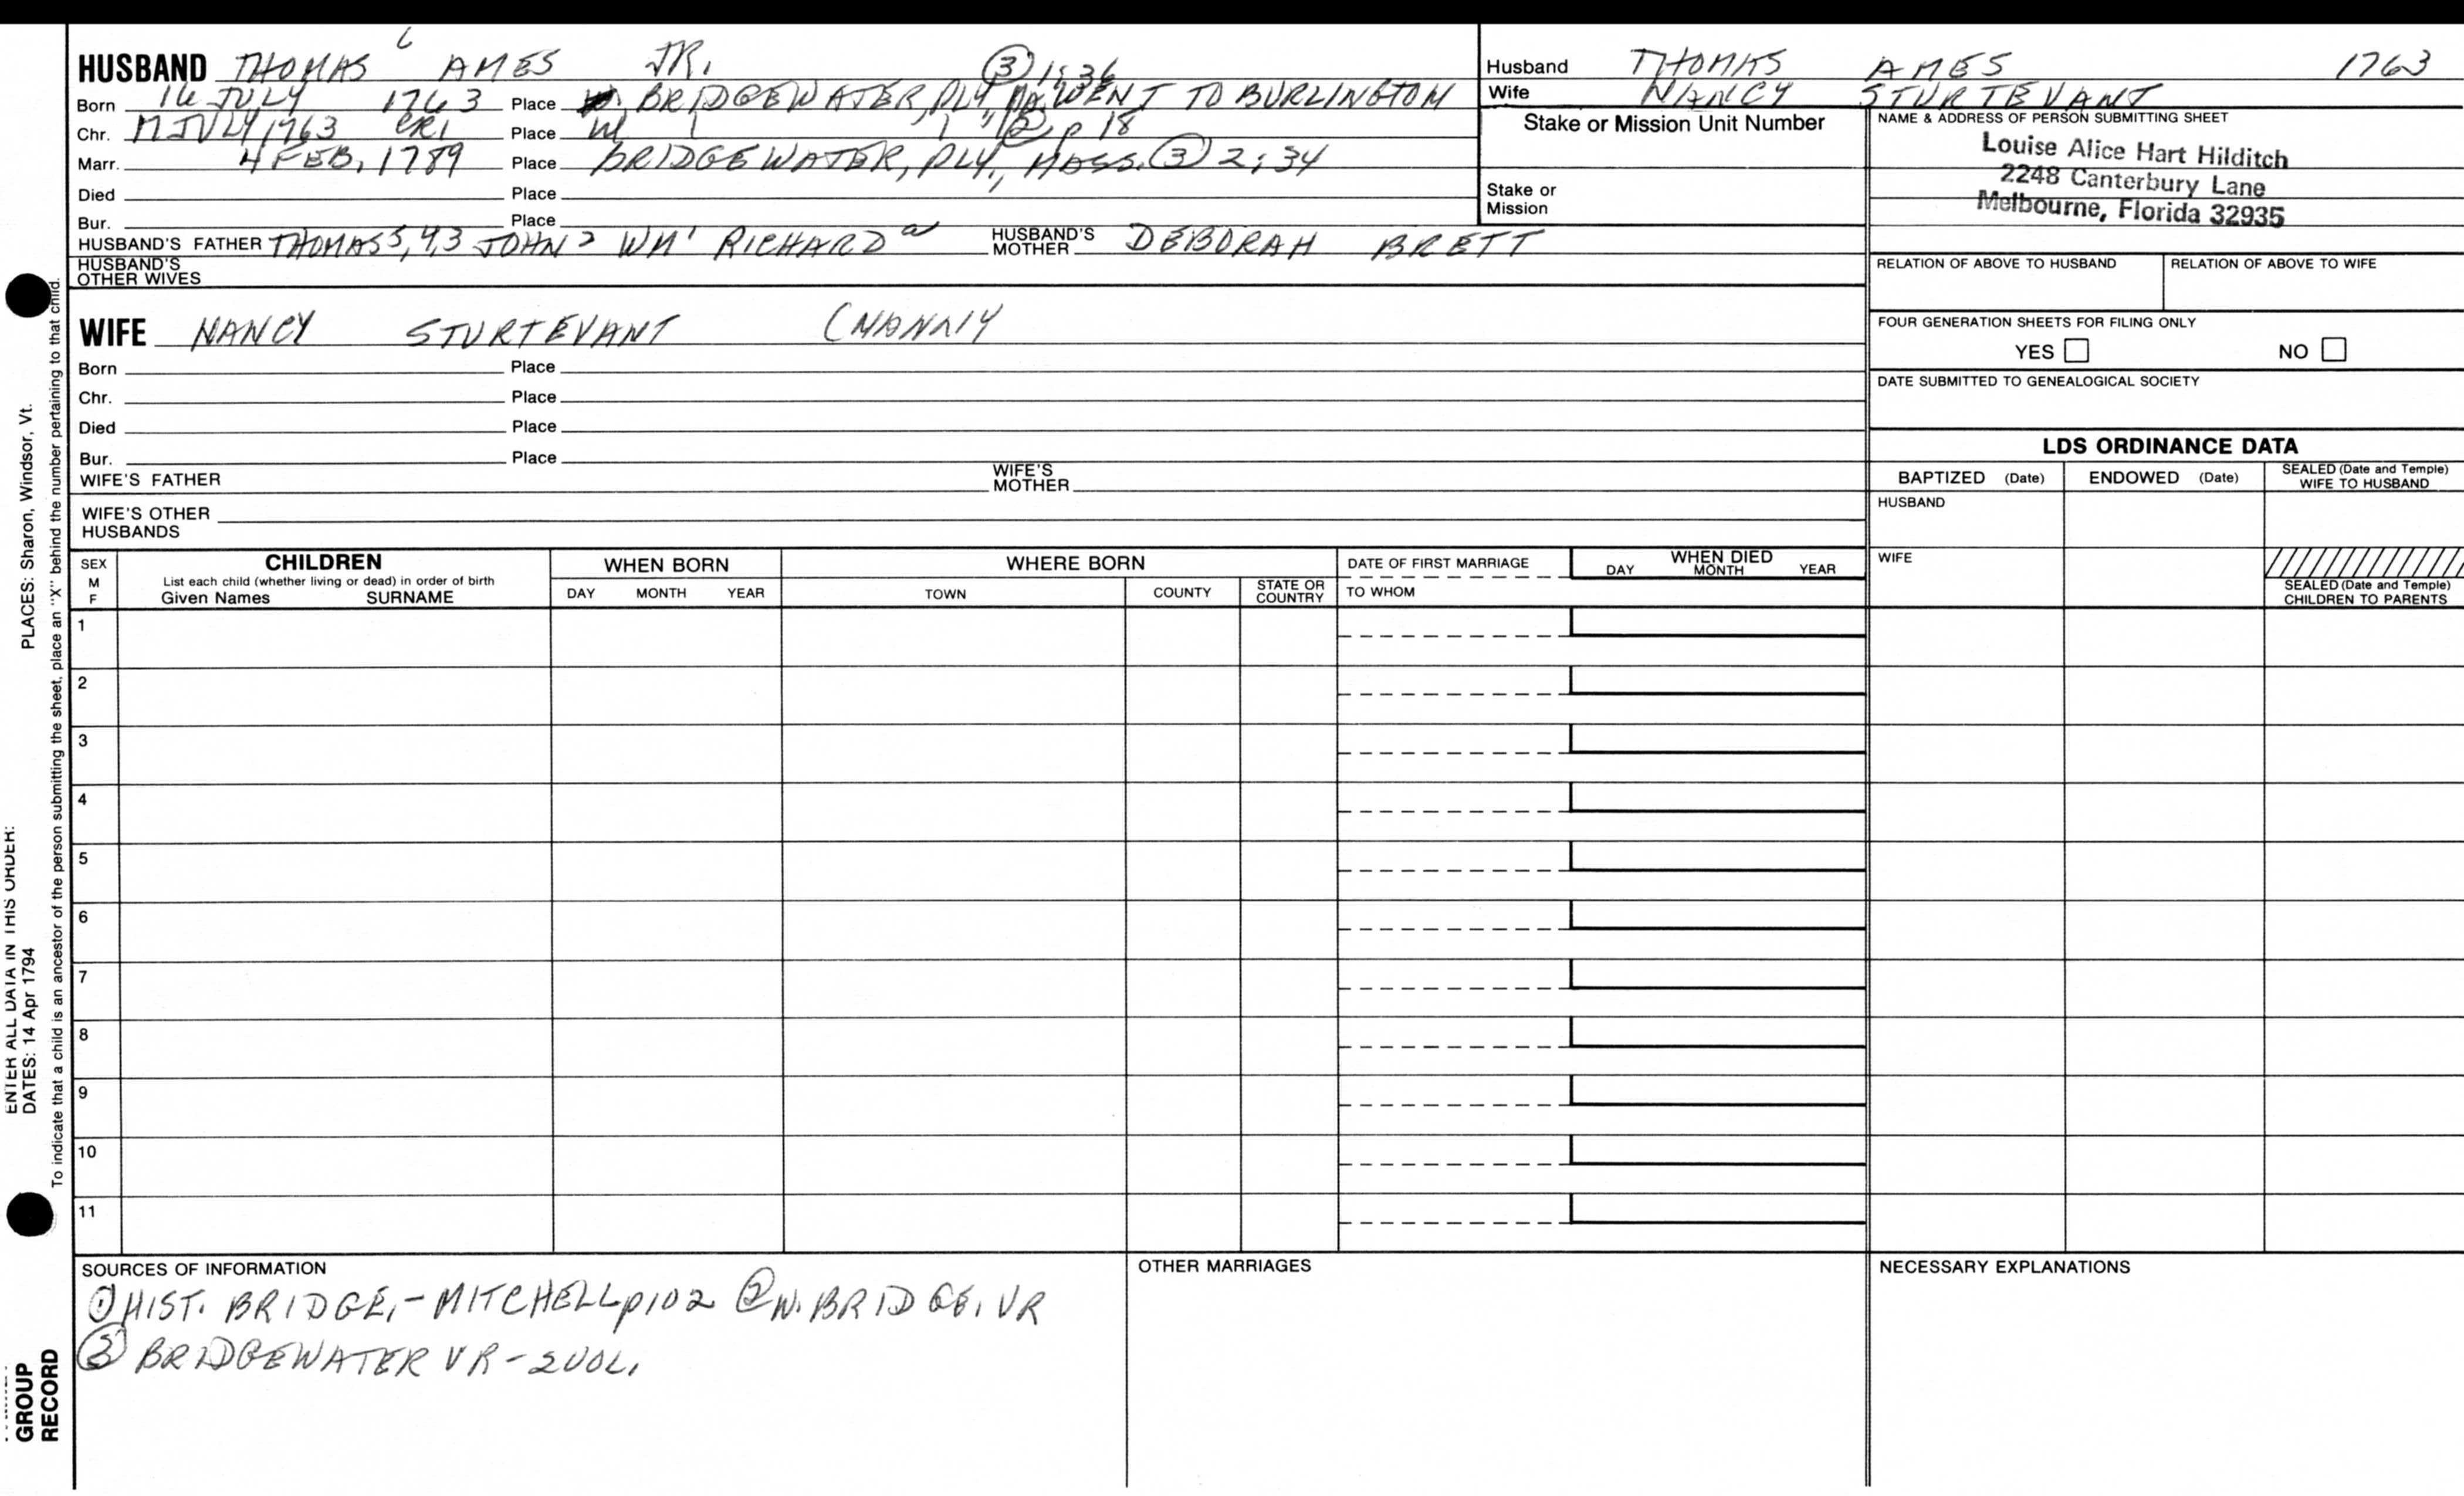 HUSBAND THOMAS 6 AMES JR. ③ 1:36
Born 16 JULY 1763 Place BRIDGEWATER, PLY, MA. WENT TO BURLINGTON
Chr. 17 JULY 1763 CR1 Place W " ② p 18
Marr. 4 FEB, 1789 Place BRIDGEWATER, PLY., MASS. ③ 2:34
Died Place
Bur. Place
HUSBAND'S FATHER THOMAS 5, 43 JOHN 2 WM 1 RICHARD a HUSBAND'S MOTHER DEBORAH BRETT
HUSBAND'S OTHER WIVES
WIFE NANCY STURTEVANT (NANNY
Born Place
Chr. Place
Died Place
Bur. Place
WIFE'S FATHER WIFE'S MOTHER
WIFE'S OTHER HUSBANDS
Husband THOMAS AMES 1763
Wife NANCY STURTEVANT
Stake or Mission Unit Number
Stake or Mission
NAME & ADDRESS OF PERSON SUBMITTING SHEET
Louise Alice Hart Hilditch
2248 Canterbury Lane
Melbourne, Florida 32935
RELATION OF ABOVE TO HUSBAND RELATION OF ABOVE TO WIFE
FOUR GENERATION SHEETS FOR FILING ONLY
YES NO
DATE SUBMITTED TO GENEALOGICAL SOCIETY
LDS ORDINANCE DATA
BAPTIZED (Date) ENDOWED (Date) SEALED (Date and Temple) WIFE TO HUSBAND
HUSBAND
WIFE
SEALED (Date and Temple) CHILDREN TO PARENTS
SEX M F
CHILDREN
List each child (whether living or dead) in order of birth
Given Names SURNAME
WHEN BORN
DAY MONTH YEAR
WHERE BORN
TOWN COUNTY STATE OR COUNTRY
DATE OF FIRST MARRIAGE
TO WHOM
WHEN DIED
DAY MONTH YEAR
1
2
3
4
5
6
7
8
9
10
11
SOURCES OF INFORMATION
① HIST. BRIDGE. - MITCHELL p102 ② W. BRIDGE. VR
③ BRIDGEWATER VR - 2 VOL.
OTHER MARRIAGES
NECESSARY EXPLANATIONS
ENTER ALL DATA IN THIS ORDER:
DATES: 14 Apr 1794 PLACES: Sharon, Windsor, Vt.
To indicate that a child is an ancestor of the person submitting the sheet, place an "X" behind the number pertaining to that child.
GROUP
RECORD